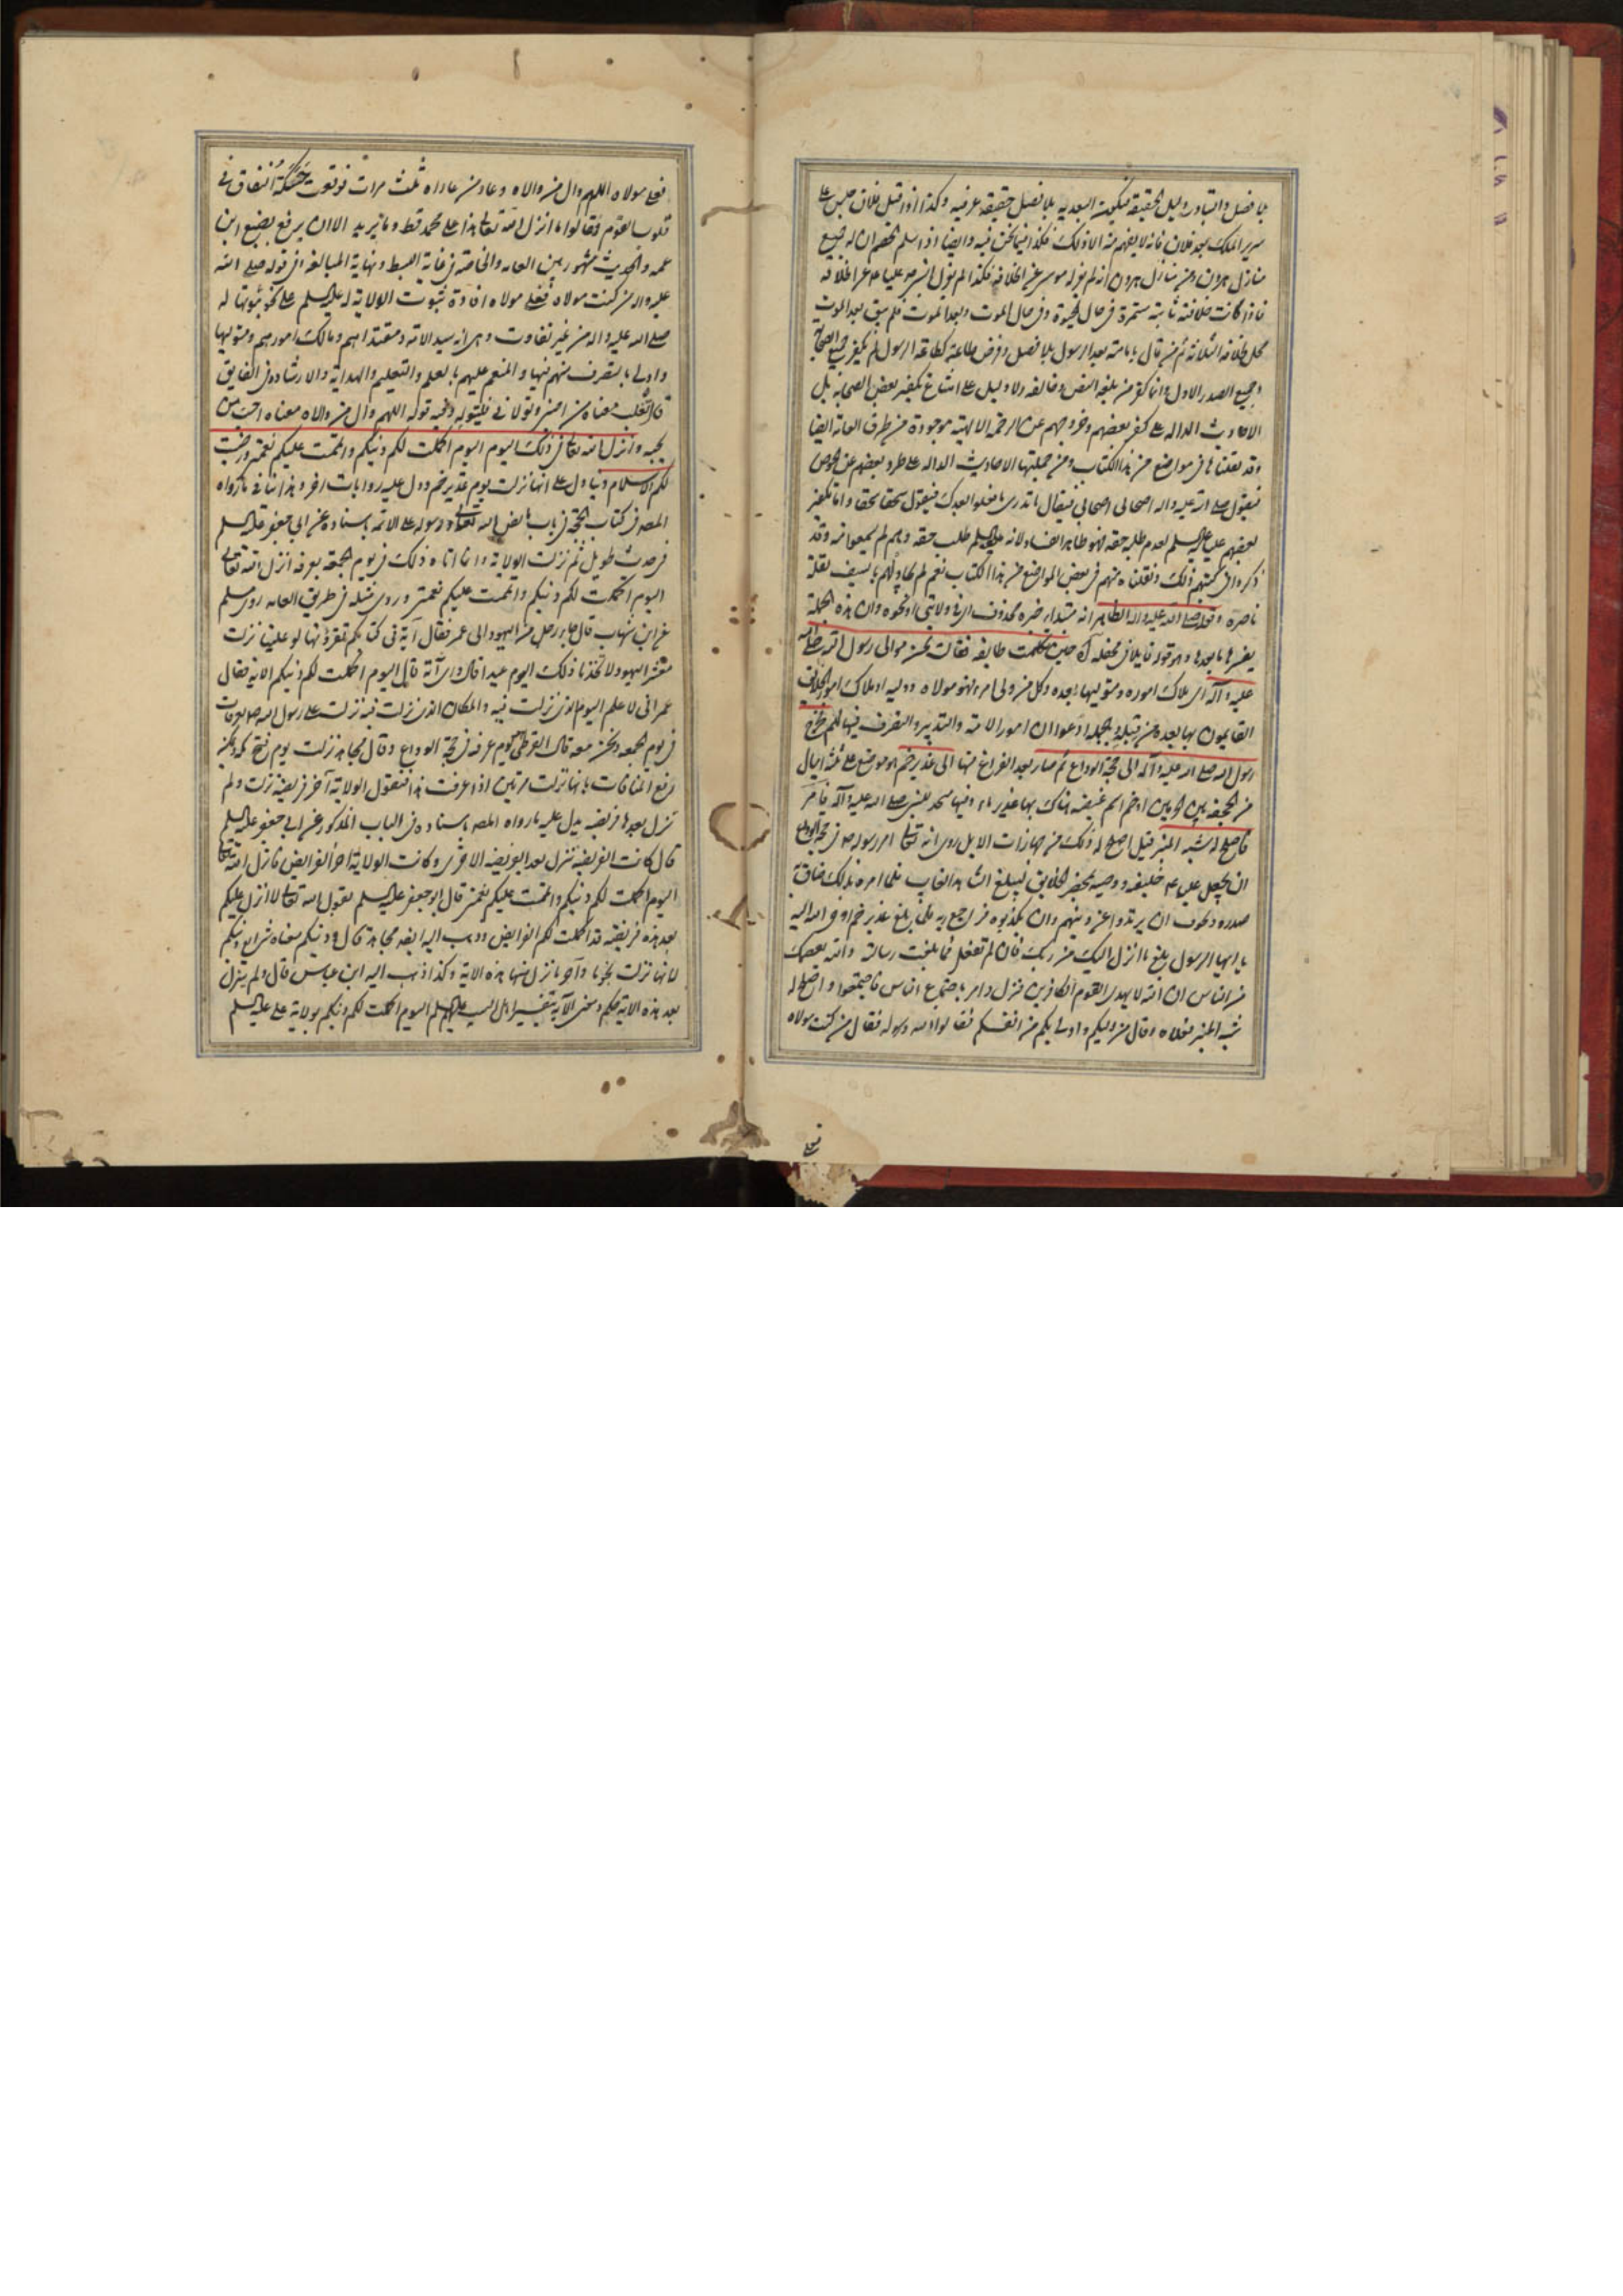 بلا فصل والتبادر دليل الحقيقة فيكون البعدية بلا فصل حقيقة عرفية وكذا اذا قيل فلان جلس على
سرير الملك بعد فلان فانه لا يفهم منه الا ذلك فكذا فيما نحن فيه وايضا اذا سلم الخصم ان له جميع
منازل هرون ومن منازل هرون انه لم يعزله موسى عن الخلافة فكذا لم يعزل النبي ص عليا ع عن الخلافة
فاذا كانت خلافته ثابتة مستمرة في حال الحيوة وفي حال الموت وبعد الموت فلم يبق بعد الموت
محل لخلافة الثلاثة ثم من قال بامامته بعد الرسول بلا فصل وفرض طاعته كطاعة الرسول لم يكفر جميع الصحابة
وجميع الصدر الاول وانما كفر من بلغه النص وخالفه ولا دليل على امتناع تكفير بعض الصحابة بل
الاحاديث الدالة على كفر بعضهم وخروجهم عن الرحمة الالهية موجودة من طرق العامة ايضا
وقد نقلناها في مواضع من هذا الكتاب ومن جملتها الاحاديث الدالة على طرد بعضهم عن الحوض
فيقول صلى الله عليه واله اصحابي اصحابي فيقال ما تدري ما فعلوا بعدك فيقول سحقا سحقا واما تكفير
بعضهم عليا عليه السلم لعدم طلبه حقه فهو ظاهر الفساد لانه عليه السلم طلب حقه وهم لم يسمعوا منه وقد
ذكروا في كتبهم ذلك ونقلناه منهم في بعض المواضع من هذا الكتاب نعم لم يجادلهم بالسيف لقلة
ناصره وقوله صلى الله عليه واله الظاهر انه مبتداء خبره محذوف اي في ولايتي او نحوه وان هذه الجملة
يفسرها ما بعدها وهو قوله قايلا في محفله اه حين تكلمت طايفة فقالت نحن موالي رسول الله صلى الله
عليه واله اي ملاك اموره ومتوليها بعده وكل من ولي امرء فهو مولاه ووليه او ملاك امور الخلايق
القايمون بها بعده من قبله وبالجملة ادعوا ان امور الامة والتدبير والتصرف فيها لهم فخرج
رسول الله صلى الله عليه واله الى حجة الوداع ثم صار بعد الفراغ منها الى غدير خم هو موضع على ثلثة اميال
من الجحفة بين الحرمين او خم اسم غيضة هناك بها غدير ماء وفيها مسجد للنبي صلى الله عليه واله فامر
فاصلح له شبه المنبر قيل اصلح له ذلك من جهازات الابل روي انه تعالى امر رسوله ص في حجة الوداع
ان يجعل علي ع خليفة ووصيه بمحضر الخلايق ليبلغ الشاهد الغايب فلما امره بذلك ضاق
صدره وتخوف ان يرتدوا عن دينهم وان يكذبوه فراجع ربه فلما بلغ غدير خم اوحى الله اليه
يا ايها الرسول بلغ ما انزل اليك من ربك فان لم تفعل فما بلغت رسالته والله يعصمك
من الناس ان الله لا يهدي القوم الكافرين فنزل وامر باجتماع الناس فاجتمعوا واصلح له
شبه المنبر فعلاه وقال من وليكم واولى بكم من انفسكم فقالوا الله ورسوله فقال من كنت مولاه
فعلي
فعلي مولاه اللهم وال من والاه وعاد من عاداه ثلث مرات فوقعت حسكة النفاق في
قلوب القوم فقالوا ما انزل الله تعالى هذا على محمد قط وما يريد الا ان يرفع بضبع ابن
عمه والحديث مشهور بين العامة والخاصة في غاية البسط ونهاية المبالغة اذ في قوله صلى الله
عليه واله من كنت مولاه فعلي مولاه افادة ثبوت الولاية له عليه السلم على نحو ثبوتها له
صلى الله عليه واله من غير تفاوت وهي انه سيد الامة ومقتداهم ومالك امورهم ومتوليها
واولى بالتصرف منهم فيها والمنعم عليهم بالعلم والتعليم والهداية والارشاد وفي الفايق
قال ثعلب معناه من احبني وتولاني فليتوله وفيه قوله اللهم وال من والاه معناه احب من
يحبه وانزل الله تعالى في ذلك اليوم اليوم اكملت لكم دينكم واتممت عليكم نعمتي ورضيت
لكم الاسلام دينا دل على انها نزلت يوم غدير خم ودل عليه روايات اخر وهذا ينافي ما رواه
المصه في كتاب الحجة في باب ما نص الله تعالى ورسوله على الائمة باسناده عن ابي جعفر عليه السلم
في حديث طويل ثم نزلت الولاية وانما اتاه ذلك في يوم الجمعة بعرفة انزل الله تعالى
اليوم اكملت لكم دينكم واتممت عليكم نعمتي وروي مثله في طريق العامة روى مسلم
عن ابن شهاب قال جاء رجل من اليهود الى عمر فقال آية في كتابكم تقرؤنها لو علينا نزلت
معشر اليهود لاتخذنا ذلك اليوم عيدا قال واي آية قال اليوم اكملت لكم دينكم الاية فقال
عمر اني لاعلم اليوم الذي نزلت فيه والمكان الذي نزلت فيه نزلت على رسول الله ص بعرفات
في يوم الجمعة ونحن معه قال القرطبي يوم عرفة في حجة الوداع وقال مجاهد نزلت يوم فتح مكة ويمكن
رفع المنافات بانها نزلت مرتين اذا عرفت هذا فنقول الولاية آخر فريضة نزلت ولم
تنزل بعدها فريضة يدل عليه ما رواه المصه باسناده في الباب المذكور عن ابي جعفر عليه السلم
قال كانت الفريضة تنزل بعد الفريضة الاخرى وكانت الولاية اخر الفرايض فانزل الله تعالى
اليوم اكملت لكم دينكم واتممت عليكم نعمتي قال ابو جعفر عليه السلم يقول الله تعالى لا انزل عليكم
بعد هذه فريضة قد اكملت لكم الفرايض وذهب اليه ايضا مجاهد قال دينكم معناه شرايع دينكم
لانها نزلت نجوما وآخر ما نزل منها هذه الاية وكذا ذهب اليه ابن عباس قال ولم ينزل
بعد هذه الاية حكم ومعنى الآية بتفسير اهل البيت عليهم السلم اليوم اكملت لكم دينكم بولاية علي عليه السلم